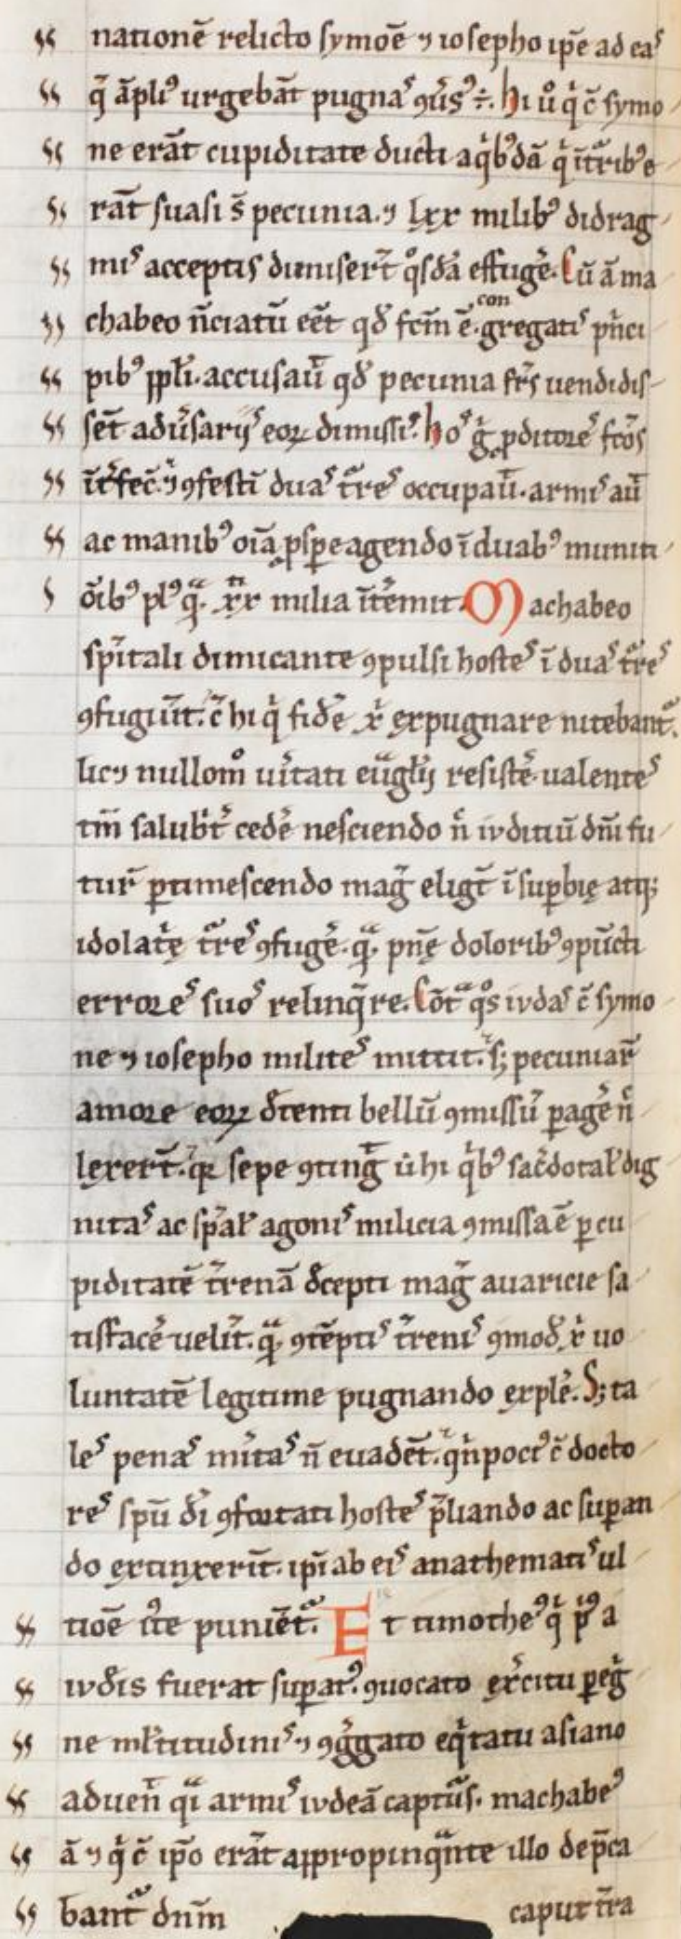 natione͂ relicto symoe͂ ⁊ iosepho ip̄e ad eaˢ
q̄ āpliꝰ urgebāt pugnaˢ ꝯūsꝰ ÷. hi ūo qͥ c̄ symo
ne erāt cupiditate ducti a qͥbꝰdā qͥ ītͬribꝰ e
rāt suasi s̄ pecunia. ⁊ lxx milibꝰ didrag
miˢ acceptis dimiserͭ̄ qͦsdā effugē. Cū ā ma
chabeo n̄ciatū eēt qd̄ fc̄m ē. congregatiˢ pͥnci
pibꝰ ppl̄i. accusaū qd̄ pecunia fr̄s uendidis
sēt adūsariȷˢ eoꝝ dimissiˢ. hoˢ g̊ ꝓditoreˢ fc̄oˢ
īt̄fec̄. ⁊ ꝯfestī duaˢ tͬreˢ occupaū. armiˢ aū
ac manibꝰ oīa ꝓsꝑe agendo ī duabꝰ muniti
ōibꝰ plꝰ qͣ̄. xx milia īt̄emit. Machabeo
sp̄itali dimicante ꝯpulsi hosteˢ ī duaˢ tͬreˢ
ꝯfugiūt. c̄ hi qͥ fidē x̄ expugnare nitebant̄.
lic⁊ nullomͦ uītati eūgl̄ȷ resistē. ualenteˢ
tm̄ salubt̄ cedē nesciendo n̄ iuditiū dn̄i fu
tur̄ ꝑtimescendo mag̊ eligt̄ ī suꝑbię atq;
idolat̄ę tͬreˢ ꝯfugē. qͣ̄. pn̄ę doloribꝰ ꝯpūcti
erroreˢ suoˢ relinqͣre. Cōt̄ qͦs iudaˢ c̄ symo
ne ⁊ iosepho militeˢ mittit. s; pecuniar̄
amore eoꝝ d̄tenti bellū ꝯmissū ꝑagē n̄
lexerͭ̄. qꝛ sepe ꝯting̊ ū hi qͥbꝰ sac̄dotal̄ dig
nitaˢ ac sp̄al̄ agoniˢ milicia ꝯmissa ē ꝑ cu
piditatē tͬrenā d̄cepti mag̊ auaricie sa
tisfacē uelīt. qͣ̄. ꝯtēptiˢ tͬreniˢ ꝯmod̄ x̄ uo
luntatē legitime pugnando explē. S; ta
leˢ penaˢ mītaˢ n̄ euadēt. qn̄pociꝰ c̄ docto
reˢ spū dī ꝯfortati hosteˢ p̄liando ac suꝑan
do extinxerīt. ip̄i ab eiˢ anathematiˢ ul
tioē iͭ̄e puniēt̄. Et timotheꝰ qͥ pͥꝰ a
iud̄is fuerat suꝑatꝰ. ꝯuocato ex̄citu ꝑeg̊
ne ml̄titudiniˢ ⁊ ꝯg̊gato eqͥtatu asiano
aduen̄ qͣi armiˢ iudeā captūꝰ. machabeꝰ
ā ⁊ qͥ c̄ ip̄o erāt appropinqͣnte illo dep̄ca
bant̄ dn̄m caput tͬra